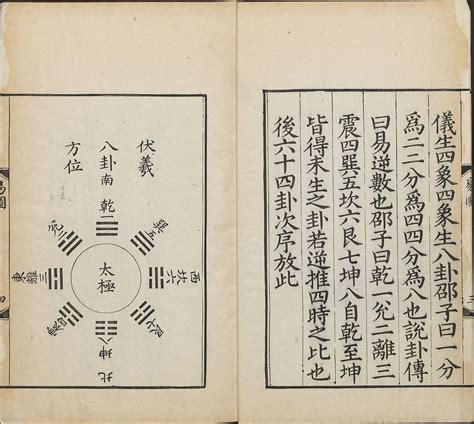 儀生四象四象生八卦邵子曰一分
為二二分為四四分為八也說卦傳
曰易逆數也邵子曰乾一兌二離三
震四巽五坎六艮七坤八自乾至坤
皆得未生之卦若逆推四時之比也
後六十四卦次序放此
伏羲
八卦
方位
南
乾一
兌二
巽五
東
離三
太極
坎六
西
震四
艮七
坤八
北
易圖
四